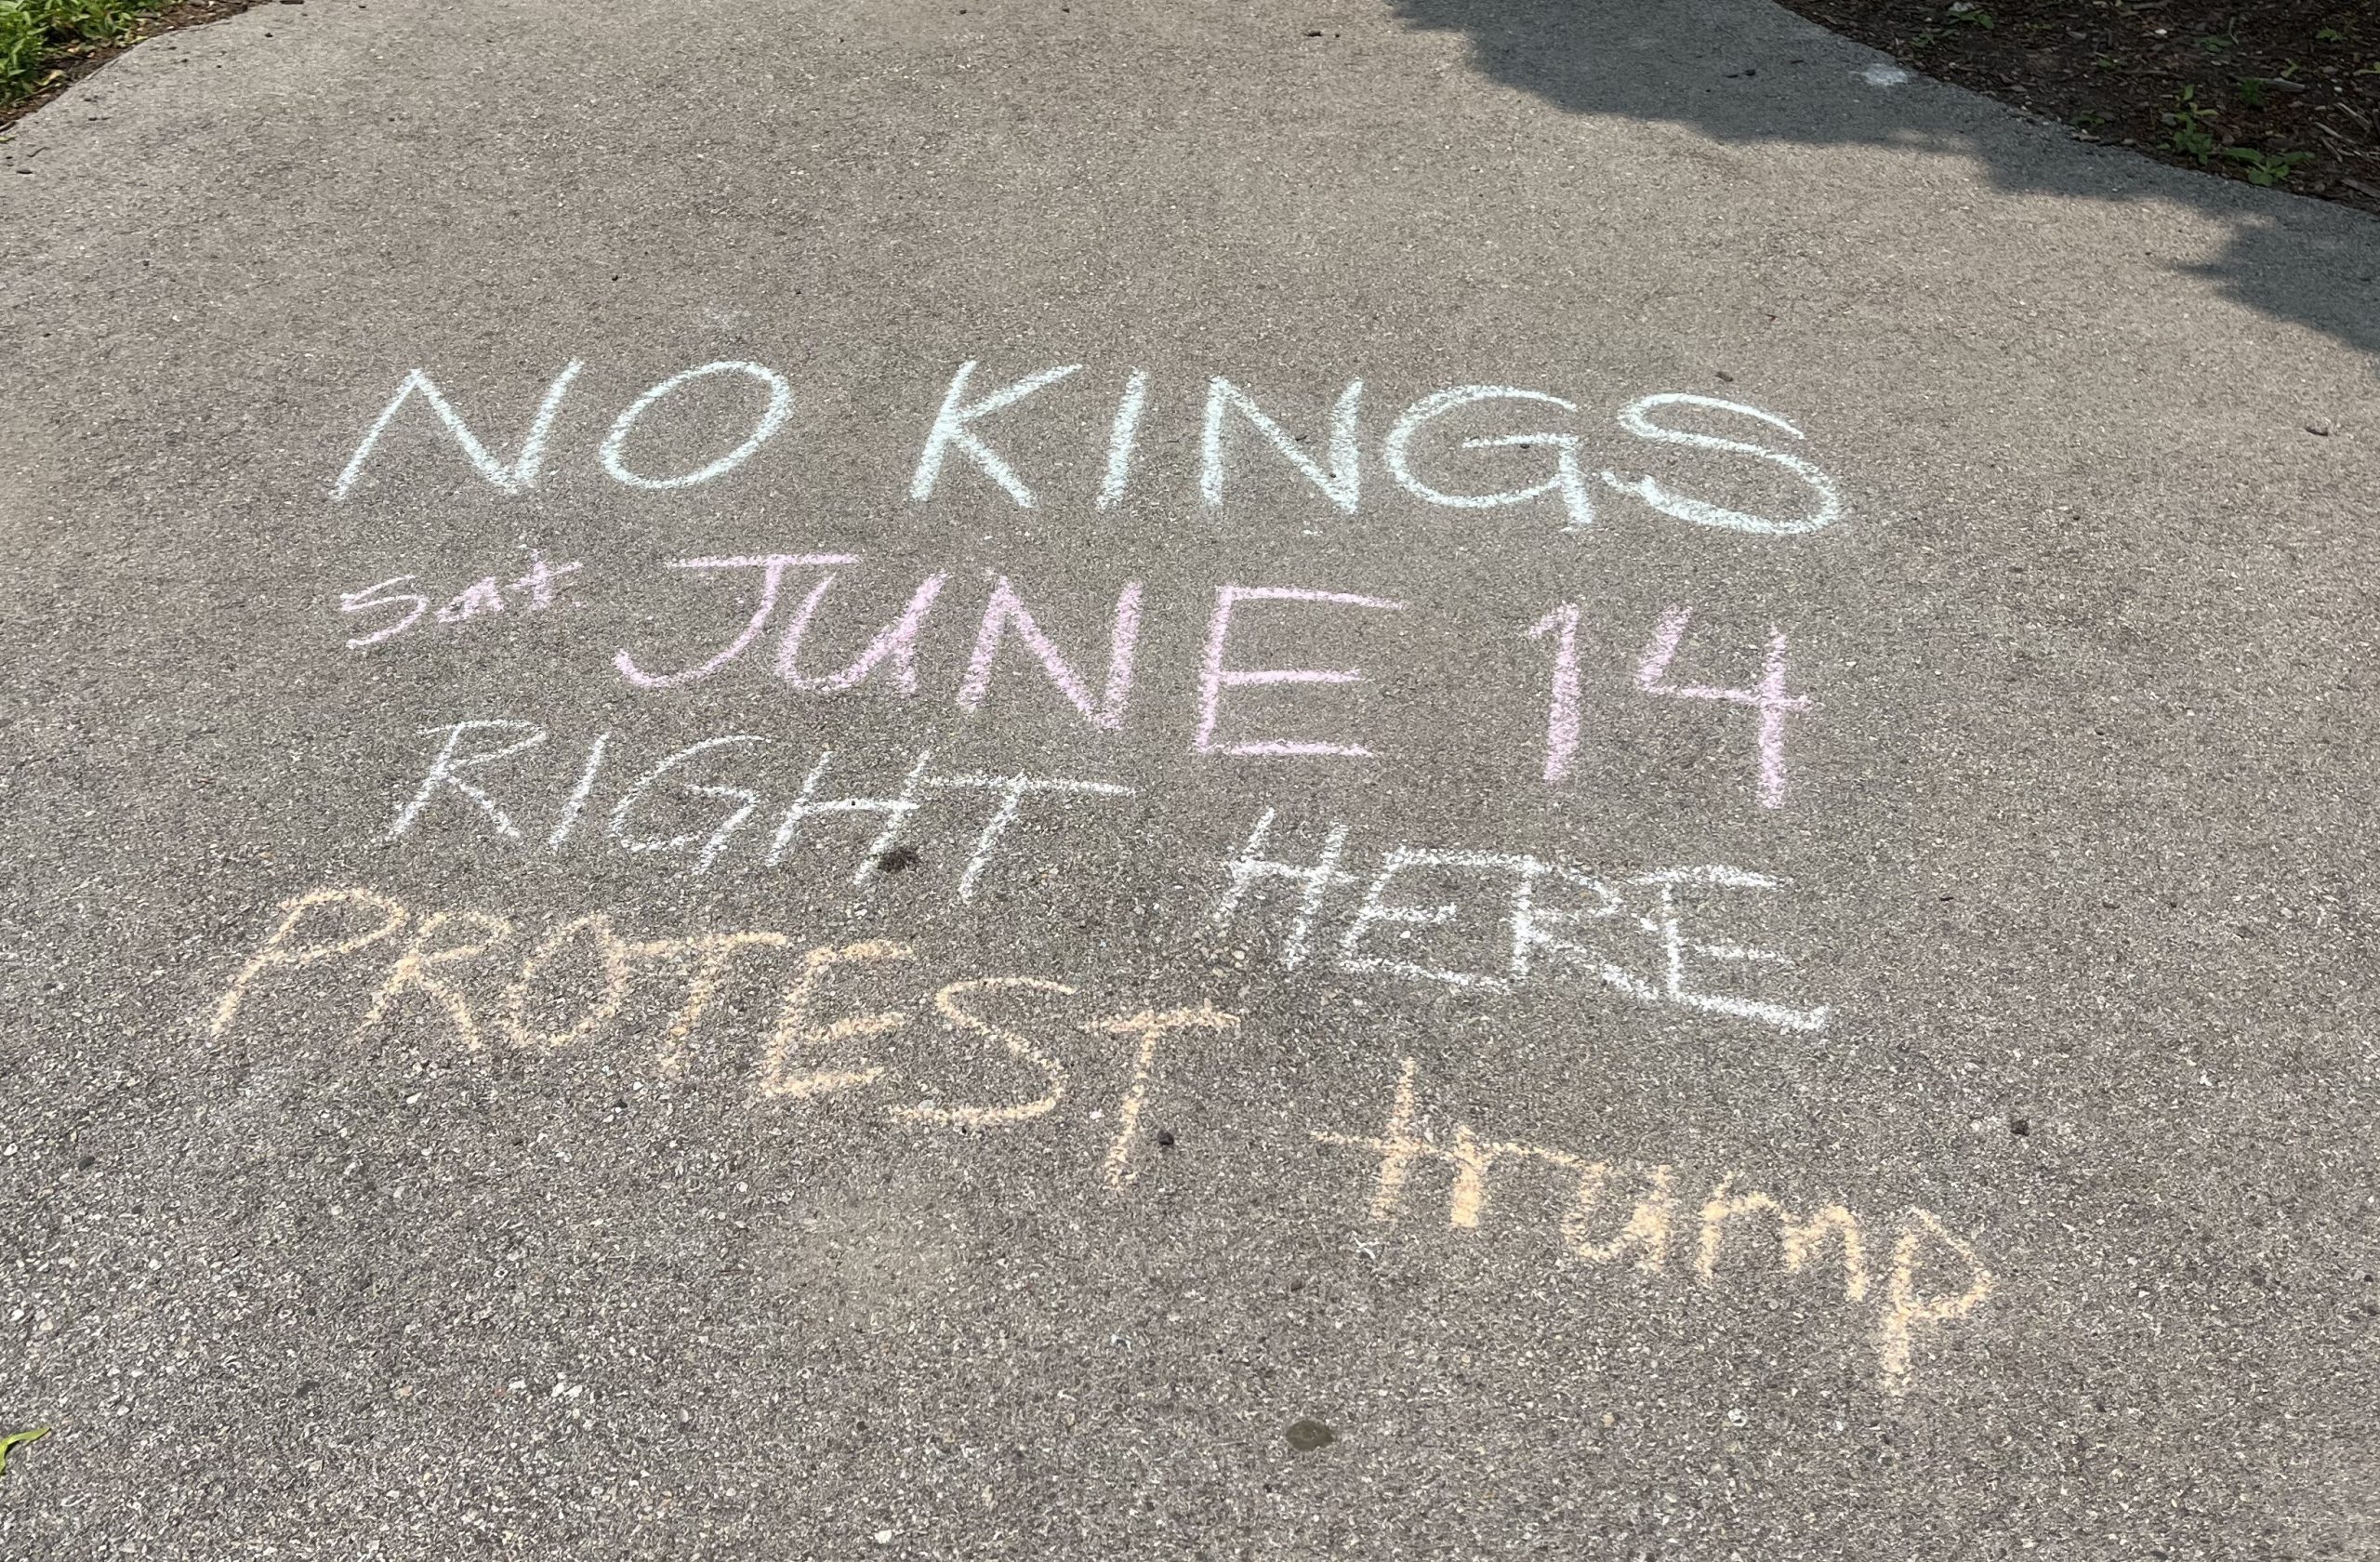 NO KINGS
Sat JUNE 14
RIGHT HERE
PROTEST trump